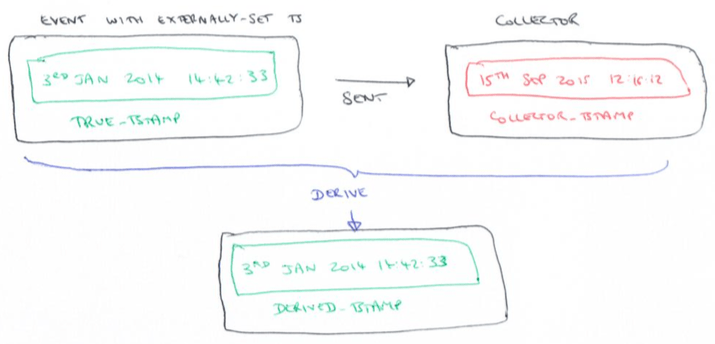 EVENT WITH EXTERNALLY-SET TS
COLLECTOR
3RD JAN 2014 14:42:33
TRUE_TSTAMP
SENT
15TH SEP 2015 12:16:12
COLLECTOR_TSTAMP
DERIVE
3RD JAN 2014 14:42:33
DERIVED_TSTAMP